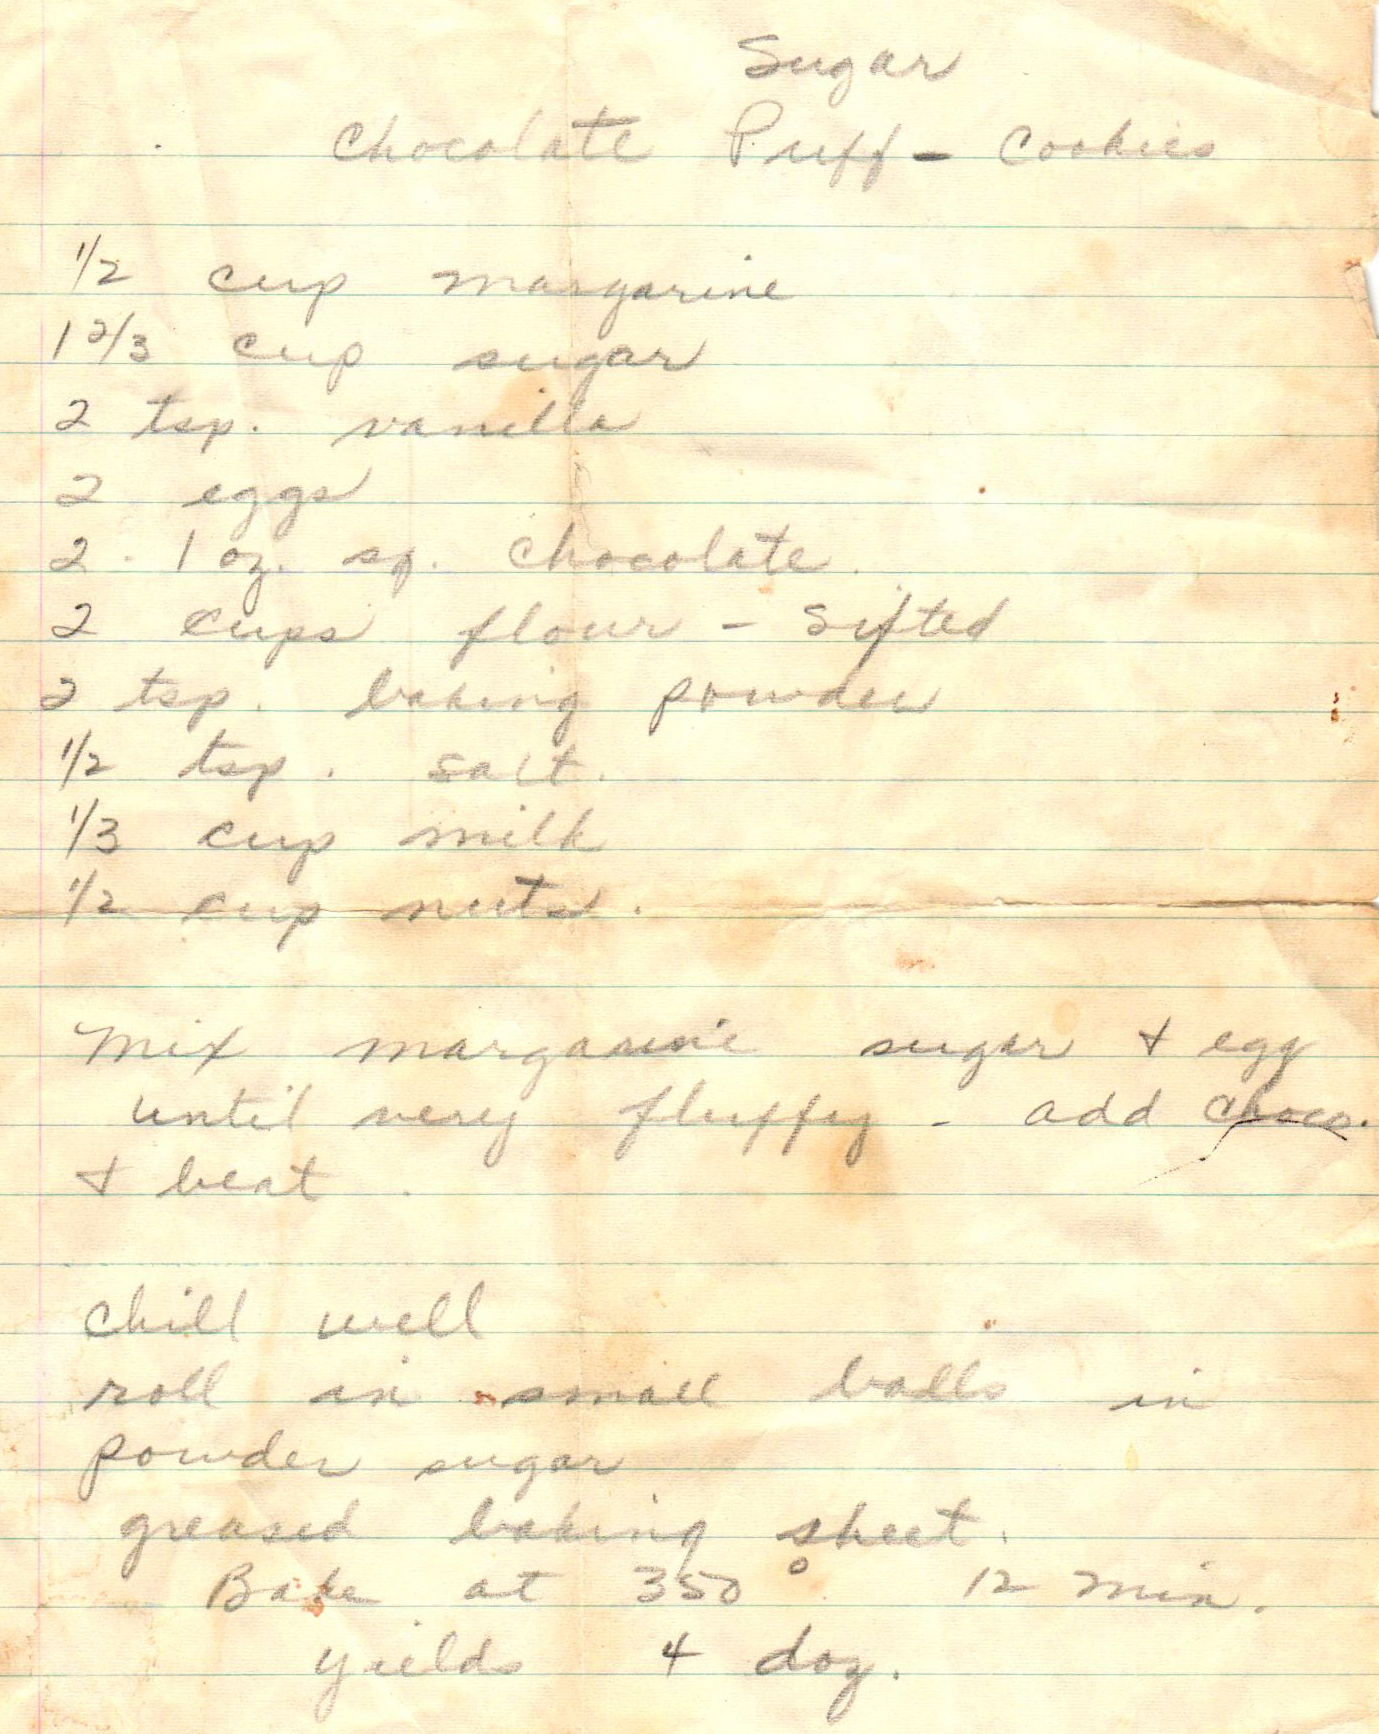 Sugar
Chocolate Puff - Cookies
1/2 cup margarine
1 2/3 cup sugar
2 tsp. vanilla
2 eggs
2 - 1 oz. sq. chocolate
2 cups flour - sifted
2 tsp. baking powder
1/2 tsp. salt.
1/3 cup milk
1/2 cup nuts.
Mix margarine sugar + egg
until very fluffy - add choco.
+ beat.
Chill well
roll in small balls in
powder sugar
greased baking sheet.
Bake at 350° 12 min.
yields 4 doz.